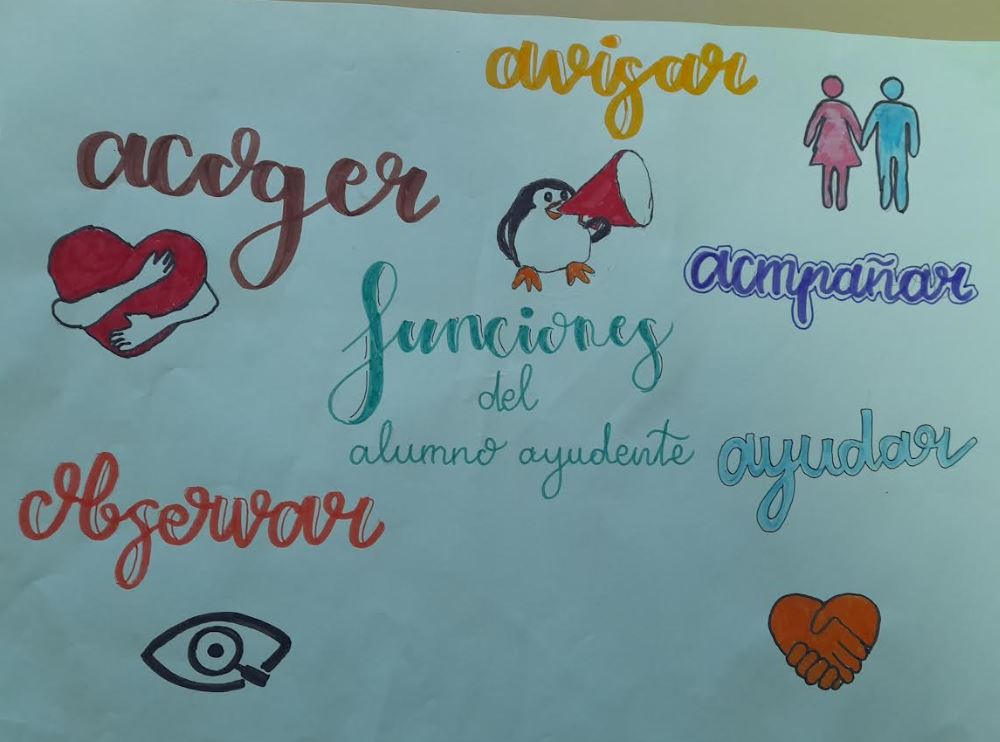 avisar
acoger
acmpañar
funciones
del
alumno ayudente
ayudar
Observar